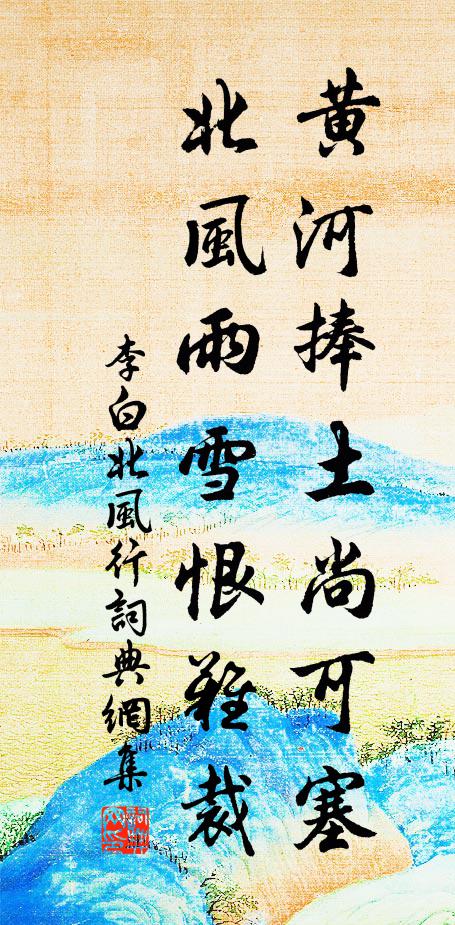 黃河捧土尚可塞
北風雨雪恨難裁
李白北風行詞典網集